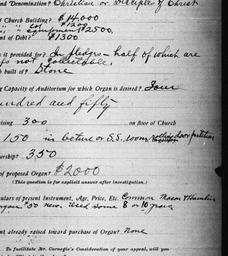 nd Denomination? Christian or Disciples of Christ
f Church Building? $14,000
" " Lot $1200
" " Equipment $2500.
nt of Debt? $1300
is it provided for? In pledges - half of which are
not collectable.
h built of? Stone
Capacity of Auditorium for which Organ is desired? Four
undred and fifty
ising 300 on floor of Church
150 in lecture or S.S. room
ership? 350
of proposed Organ? $2000
(This question is for explicit answer after investigation.)
culars of present Instrument, Age, Price, Etc. Common Mason & Hamlin
organ $50 new used some 8 or 10 years
unt already raised toward purchase of Organ? None
To facilitate Mr. Carnegie's Consideration of your appeal, will you